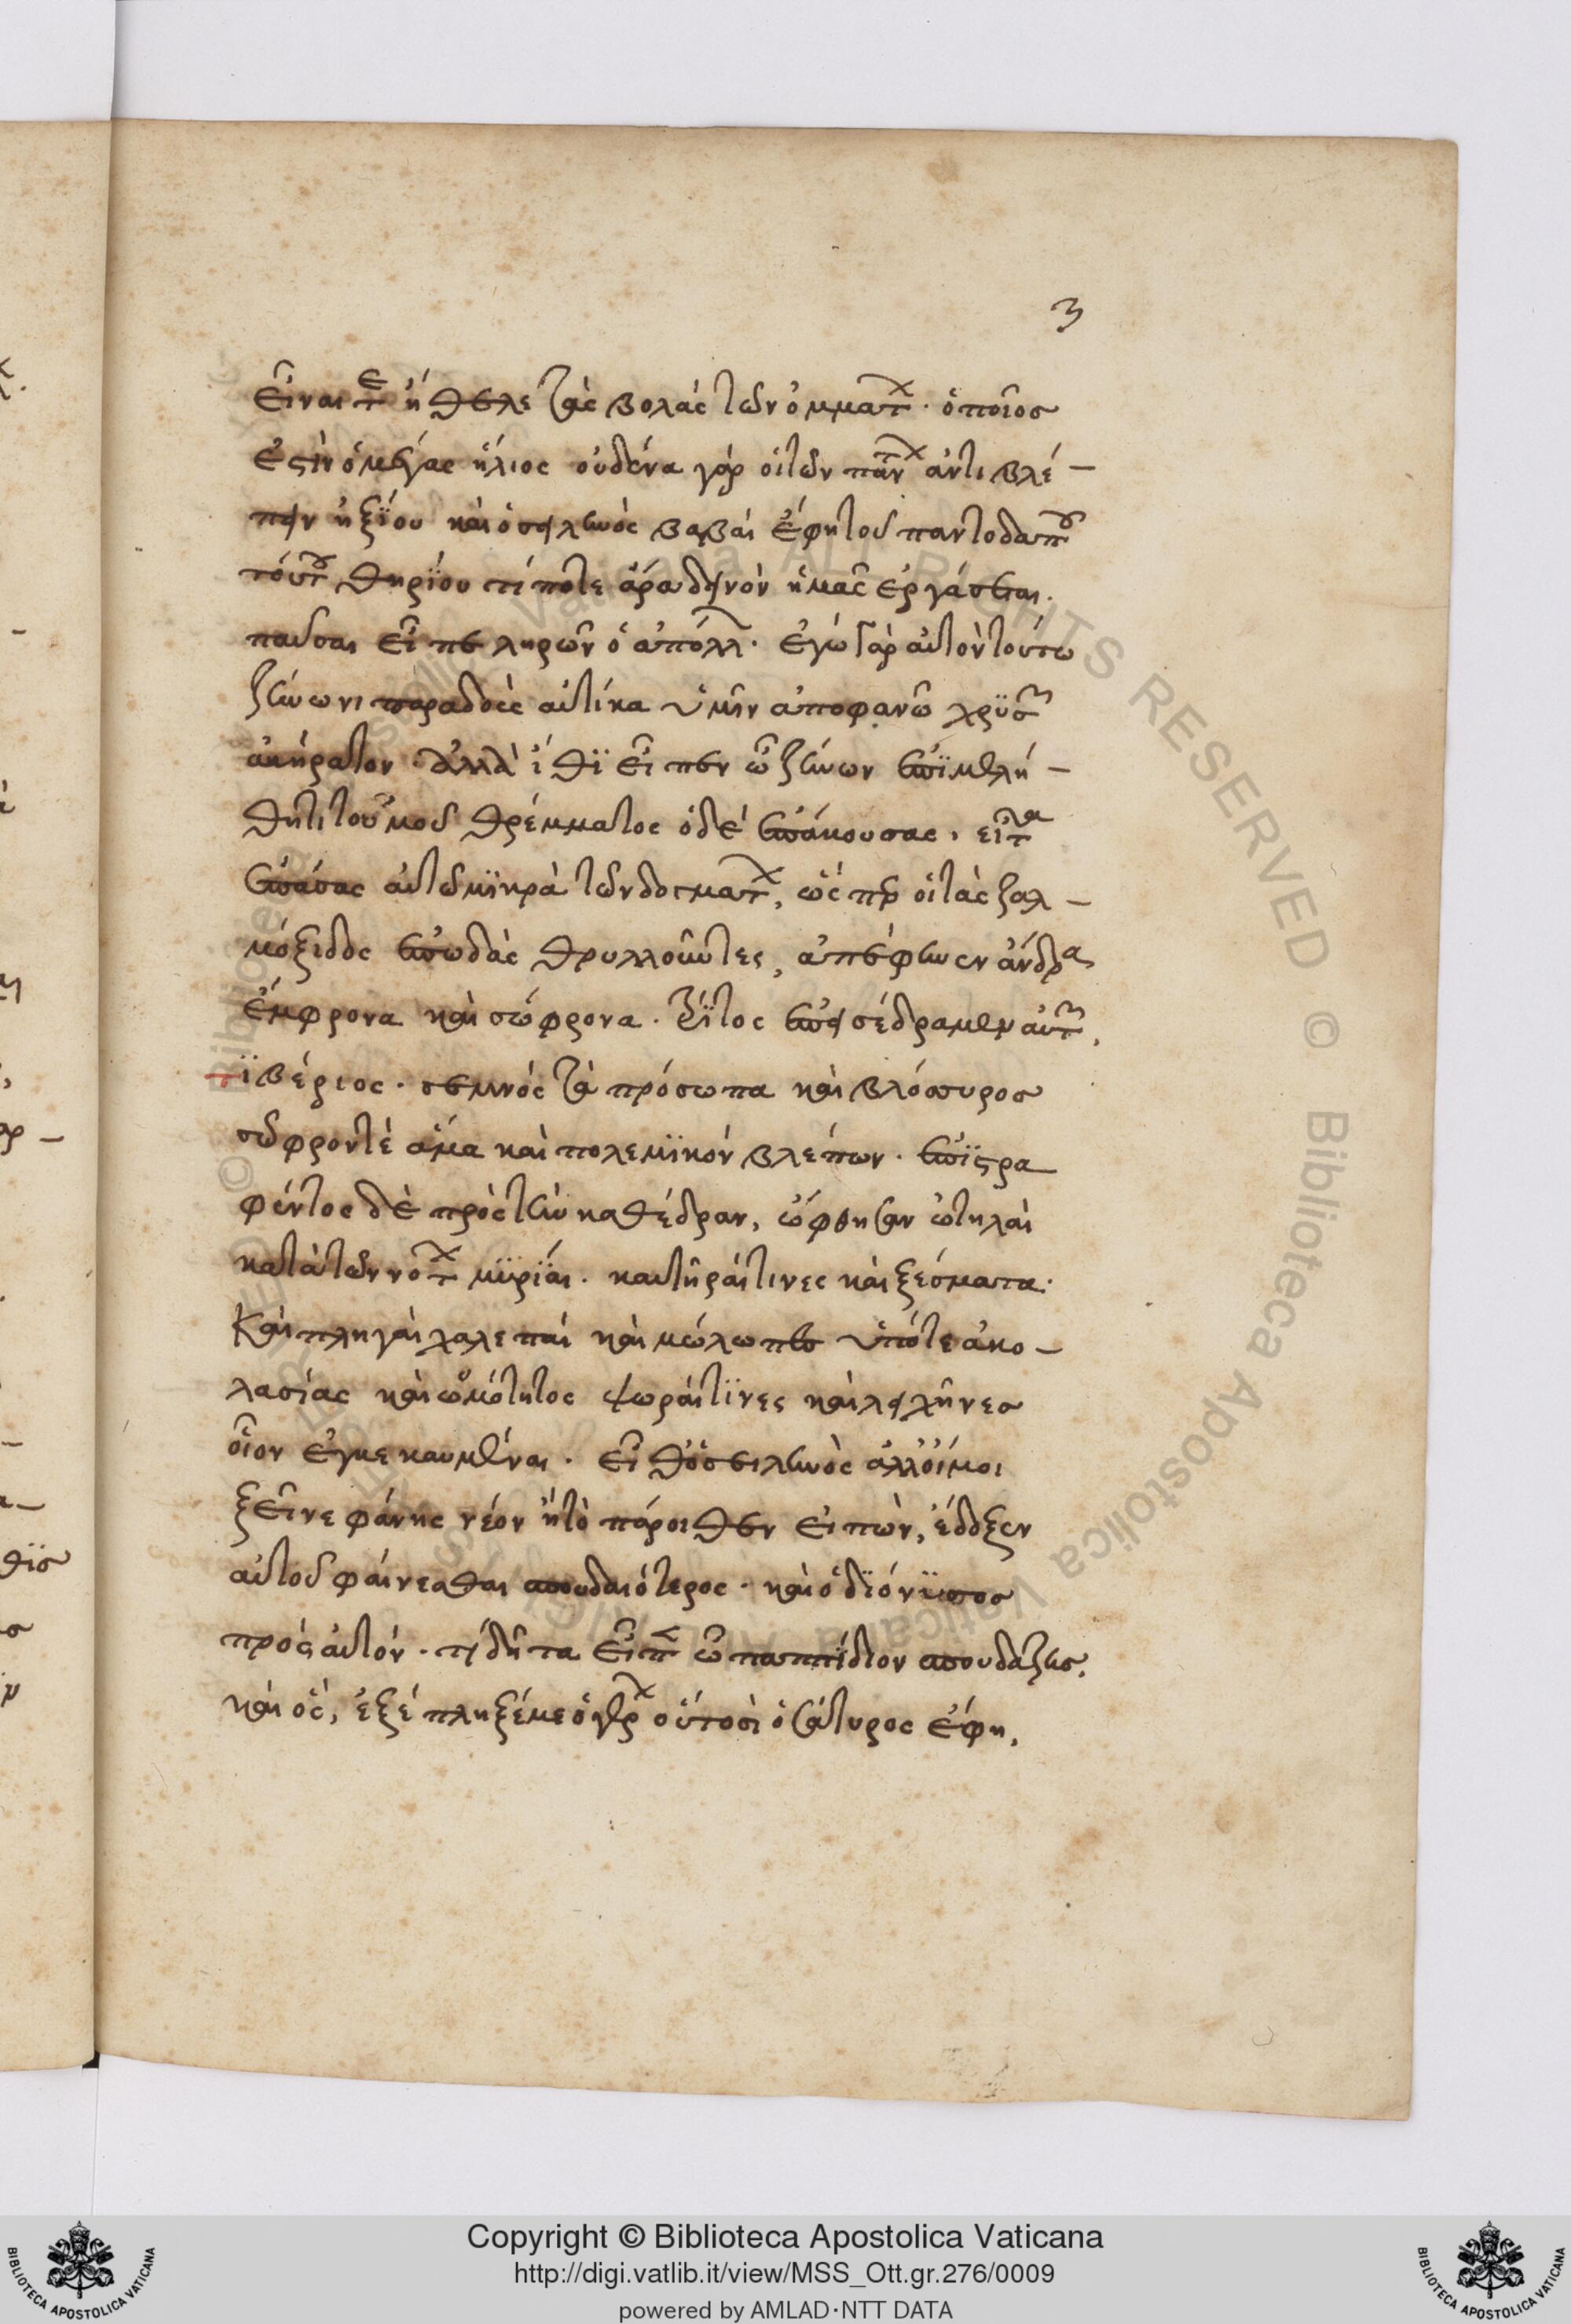 3
εἶναί τε ἤθελε τὰς βολὰς τῶν ὀμμάτων. ὁποῖος
ἐστὶν ὁ μέγας ἥλιος οὐδένα γάρ οἱ τῶν πάντων ἀντιβλέ-
πειν ἠξίου καὶ ὁ σειληνὸς βαβαὶ ἔφη τοῦ παντοδαποῦ
τούτου θηρίου τί ποτε ἄρα δεινὸν ἡμᾶς ἐργάσεται.
παῦσαι εἶπε ληρῶν ὁ ἀπόλλων. ἐγὼ γὰρ αὐτὸν τούτω
ζήνωνι παραδοὺς αὐτίκα ὑμῖν ἀποφανῶ χρυσὸν
ἀκήρατον. ἀλλ' ἴθι εἶπεν ὦ ζήνων ἐπιμελή-
θητι τοὐμοῦ θρέμματος ὁ δὲ ὑπάκουσας, εἶτα
ἐπάσας αὐτῶ μικρὰ τῶν δογμάτων, ὥσπερ οἱ τὰς ζαλ-
μόξιδος ἐπωδὰς θρυλλοῦντες, ἀπέφηνεν ἄνδρα
ἔμφρονα καὶ σώφρονα. τρίτος ἐπεισέδραμεν αὐτοῖς,
τιβέριος. σεμνὸς τὰ πρόσωπα καὶ βλόσυρος
σῶφρόν τε ἅμα καὶ πολεμικὸν βλέπων. ἐπιστρα
φέντος δὲ πρὸς τὴν καθέδραν, ὤφθησαν ὠτηλαὶ
κατὰ τῶν νότων μυρίαι. καυτῆραί τινες καὶ ξέσματα.
καὶ πληγαὶ χαλεπαὶ καὶ μώλωπες ὑπό τε ἀκο-
λασίας καὶ ὠμότητος ψωραί τινες καὶ λειχῆνες
οἷον ἐγκεκαυμέναι. εἶθ' ὁ σειληνὸς ἀλλοῖός μοι
ξεῖνε φάνης νέον ἢ τὸ πάροιθεν εἰπὼν, ἔδοξεν
αὐτοῦ φαίνεσθαι σπουδαιότερος. καὶ ὁ διόνυσος
πρὸς αὐτόν. τί δῆτα εἶπεν ὦ παππίδιον σπουδάζεις.
καὶ ὃς, ἐξέπληξέ με ὁ γέρων οὑτοσὶ ὁ σάτυρος ἔφη,
Copyright © Biblioteca Apostolica Vaticana
http://digi.vatlib.it/view/MSS_Ott.gr.276/0009
powered by AMLAD·NTT DATA